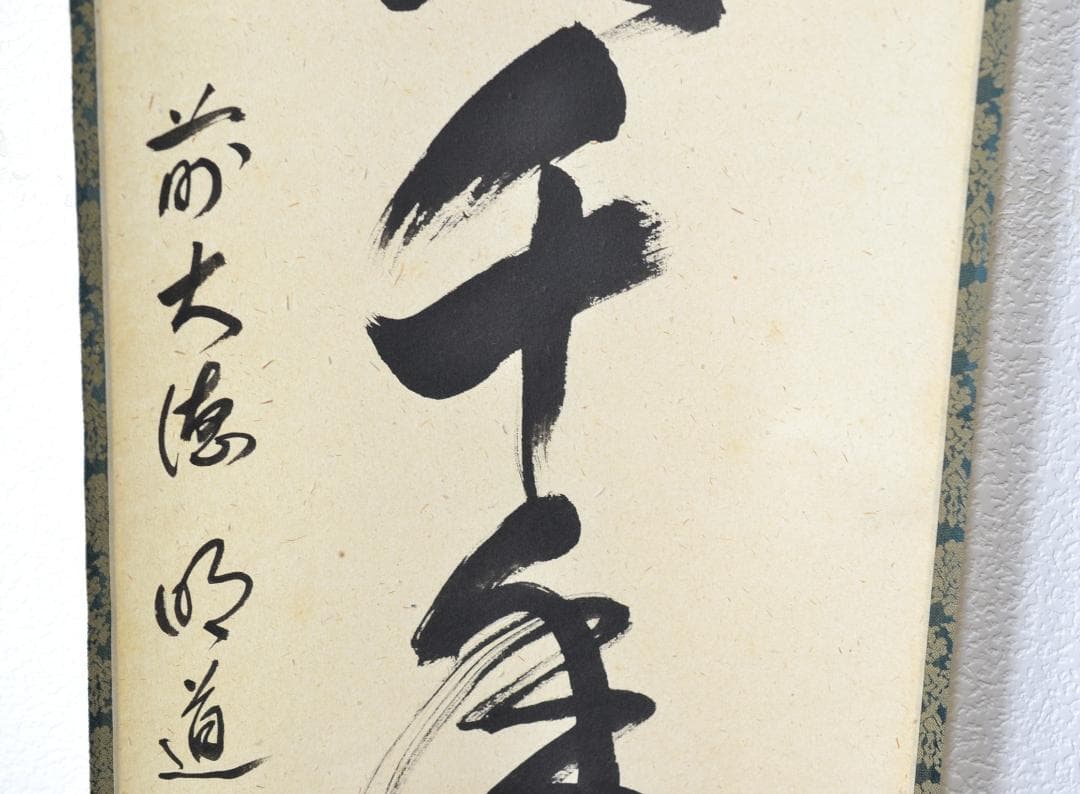 千年
前大徳 明道